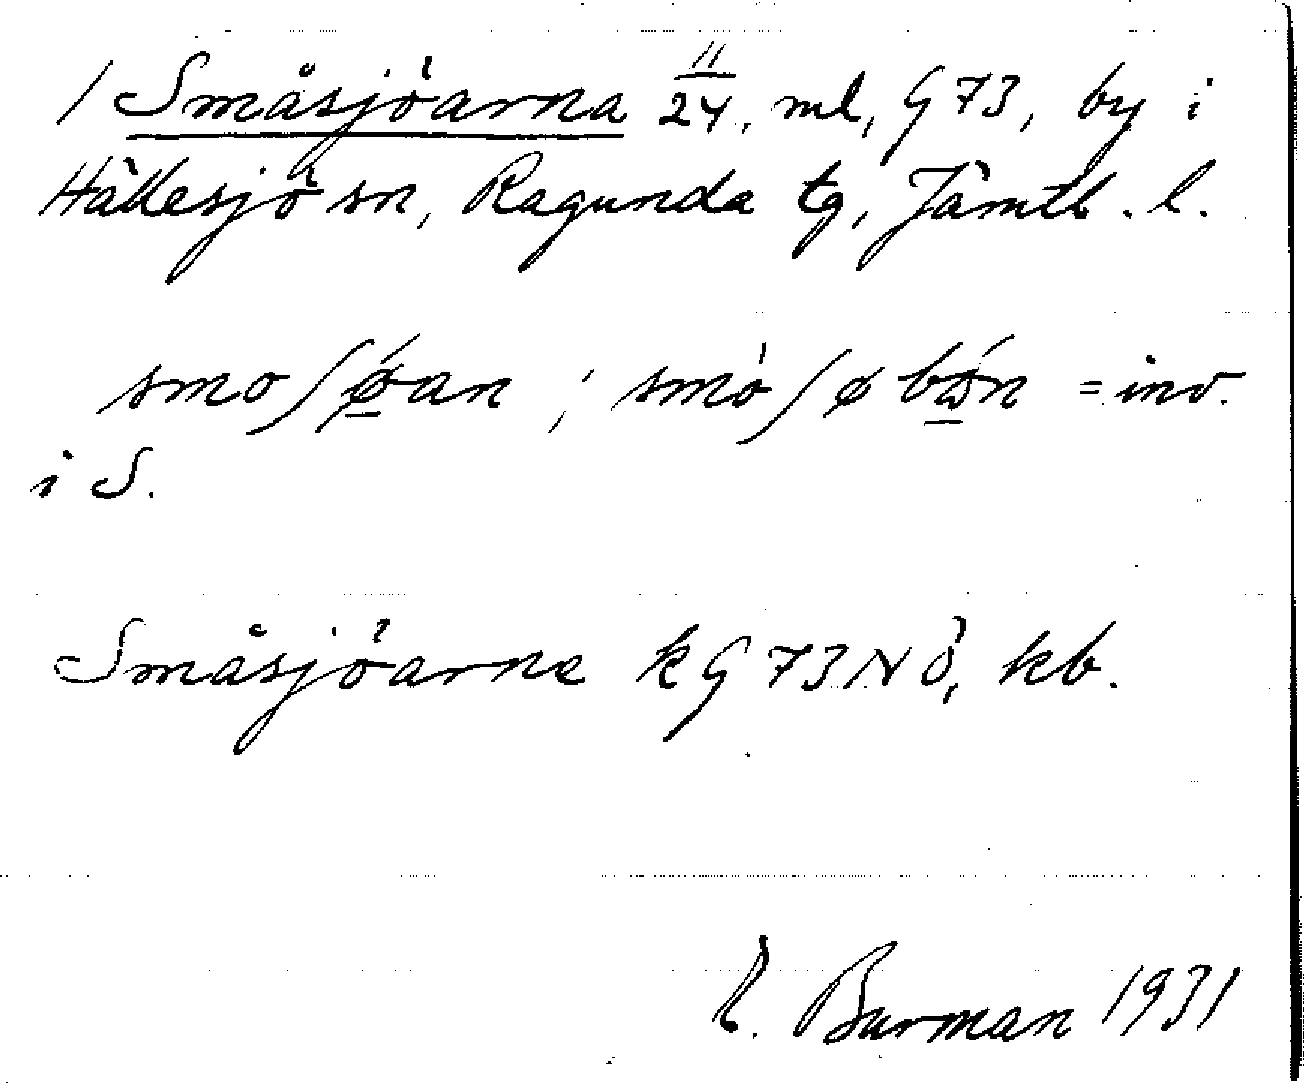 1 Småsjöarna 11/24, ml, G 73, by i
Hällesjö sn, Ragunda tg, Jämtl. l.
smoʃǿan ; smó ʃø bǿn = inv.
i S.
Småsjöarne k G 73 NÖ, kb.
Burman 1931